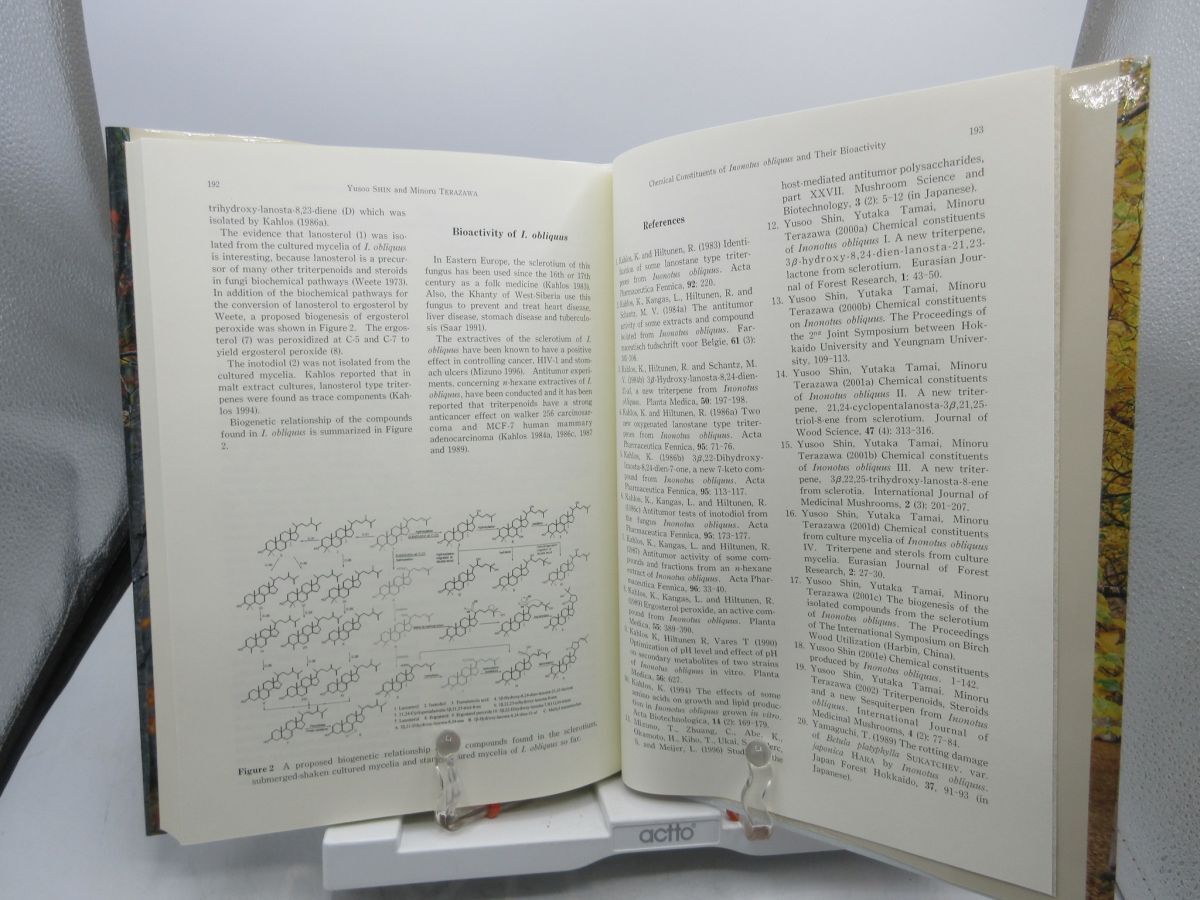 192
Yusoo SHIN and Minoru TERAZAWA
trihydroxy-lanosta-8,23-diene (D) which was
isolated by Kahlos (1986a).
The evidence that lanosterol (1) was iso-
lated from the cultured mycelia of I. obliquus
is interesting, because lanosterol is a precur-
sor of many other triterpenoids and steroids
in fungi biochemical pathways (Weete 1973).
In addition of the biochemical pathways for
the conversion of lanosterol to ergosterol by
Weete, a proposed biogenesis of ergosterol
peroxide was shown in Figure 2. The ergos-
terol (7) was peroxidized at C-5 and C-7 to
yield ergosterol peroxide (8).
The inotodiol (2) was not isolated from the
cultured mycelia. Kahlos reported that in
malt extract cultures, lanosterol type triter-
penes were found as trace components (Kah-
los 1994).
Biogenetic relationship of the compounds
found in I. obliquus is summarized in Figure
2.
Bioactivity of I. obliquus
In Eastern Europe, the sclerotium of this
fungus has been used since the 16th or 17th
century as a folk medicine (Kahlos 1983).
Also, the Khanty of West-Siberia use this
fungus to prevent and treat heart disease,
liver disease, stomach disease and tuberculo-
sis (Saar 1991).
The extractives of the sclerotium of I.
obliquus have been known to have a positive
effect in controlling cancer, HIV-1 and stom-
ach ulcers (Mizuno 1996). Antitumor experi-
ments, concerning n-hexane extractives of I.
obliquus, have been conducted and it has been
reported that triterpenoids have a strong
anticancer effect on walker 256 carcinosar-
coma and MCF-7 human mammary
adenocarcinoma (Kahlos 1984a, 1986c, 1987
and 1989).
Figure 2 A proposed biogenetic relationship compounds found in the sclerotium,
submerged-shaken cultured mycelia and cultured mycelia of I. obliquus so far.
193
Chemical Constituents of Inonotus obliquus and Their Bioactivity
References
Kahlos, K. and Hiltunen, R. (1983) Identi-
fication of some lanostane type triter-
penes from Inonotus obliquus. Acta
Pharmaceutica Fennica, 92: 220.
Kahlos, K., Kangas, L., Hiltunen, R. and
Schantz, M. V. (1984a) The antitumor
activity of some extracts and compound
isolated from Inonotus obliquus. Far-
maceutisch tudschrift voor Belgie, 61 (3):
Kahlos, K., Hiltunen, R. and Schantz, M.
V. (1984b) 3β-Hydroxy-lanosta-8,24-dien-
a new triterpene from Inonotus
obliquus. Planta Medica, 50: 197-198.
Kahlos, K. and Hiltunen, R. (1986a) Two
new oxygenated lanostane type triter-
penes from Inonotus obliquus. Acta
Pharmaceutica Fennica, 95: 71-76.
Kahlos, K. (1986b) 3β,22-Dihydroxy-
lanosta-8,24-dien-7-one, a new 7-keto com-
pound from Inonotus obliquus. Acta
Pharmaceutica Fennica, 95: 113-117.
Kahlos, K., Kangas, L. and Hiltunen, R.
(1986c) Antitumor tests of inotodiol from
the fungus Inonotus obliquus. Acta
Pharmaceutica Fennica, 95: 173-177.
Kahlos, K., Kangas, L. and Hiltunen, R.
(1987) Antitumor activity of some com-
pounds and fractions from an n-hexane
extract of Inonotus obliquus. Acta Phar-
maceutica Fennica, 96: 33-40.
Kahlos, K., Kangas, L. and Hiltunen, R.
(1989) Ergosterol peroxide, an active com-
pound from Inonotus obliquus. Planta
Medica, 55: 389-390.
Kahlos K, Hiltunen R, Vares T (1990)
Optimization of pH level and effect of pH
on secondary metabolites of two strains
of Inonotus obliquus in vitro. Planta
Medica, 56: 627.
Kahlos, K. (1994) The effects of some
amino acids on growth and lipid produc-
tion in Inonotus obliquus grown in vitro.
Acta Biotechnologica, 14 (2): 169-179.
11. Mizuno, T., Zhuang, C., Abe, K.,
Okamoto, H., Kiho, T., Ukai, S.,
S. and Meijer, L. (1996) the
host-mediated antitumor polysaccharides,
part XXVII. Mushroom Science and
Biotechnology, 3 (2): 5-12 (in Japanese).
12. Yusoo Shin, Yutaka Tamai, Minoru
Terazawa (2000a) Chemical constituents
of Inonotus obliquus I. A new triterpene,
3β-hydroxy-8,24-dien-lanosta-21,23-
lactone from sclerotium. Eurasian Jour-
nal of Forest Research, 1: 43-50.
13. Yusoo Shin, Yutaka Tamai, Minoru
Terazawa (2000b) Chemical constituents
on Inonotus obliquus. The Proceedings of
the 2nd Joint Symposium between Hok-
kaido University and Yeungnam Univer-
sity. 109-113.
14. Yusoo Shin, Yutaka Tamai, Minoru
Terazawa (2001a) Chemical constituents
of Inonotus obliquus II. A new triter-
pene, 21,24-cyclopentalanosta-3β,21,25-
triol-8-ene from sclerotium. Journal of
Wood Science, 47 (4): 313-316.
15. Yusoo Shin, Yutaka Tamai, Minoru
Terazawa (2001b) Chemical constituents
of Inonotus obliquus III. A new triter-
pene, 3β,22,25-trihydroxy-lanosta-8-ene
from sclerotia. International Journal of
Medicinal Mushrooms, 2 (3): 201-207.
16. Yusoo Shin, Yutaka Tamai, Minoru
Terazawa (2001d) Chemical constituents
from culture mycelia of Inonotus obliquus
IV. Triterpene and sterols from culture
mycelia. Eurasian Journal of Forest
Research, 2: 27-30.
17. Yusoo Shin, Yutaka Tamai, Minoru
Terazawa (2001c) The biogenesis of the
isolated compounds from the sclerotium
of Inonotus obliquus. The Proceedings
of The International Symposium on Birch
Wood Utilization (Harbin, China).
18. Yusoo Shin (2001e) Chemical constituents
produced by Inonotus obliquus. 1-142.
19. Yusoo Shin, Yutaka Tamai, Minoru
Terazawa (2002) Triterpenoids, Steroids
and a new Sesquiterpen from Inonotus
obliquus. International Journal of
Medicinal Mushrooms, 4 (2): 77-84.
20. Yamaguchi, T. (1989) The rotting damage
of Betula platyphylla SUKATCHEV. var.
japonica HARA by Inonotus obliquus.
Japan Forest Hokkaido, 37, 91-93 (in
Japanese).
actto